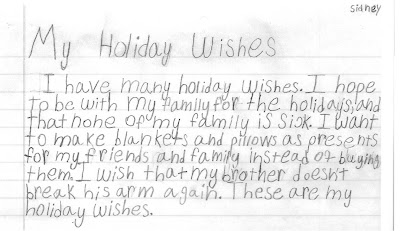 Sidney
My Holiday Wishes
I have many holiday wishes. I hope
to be with my family for the holidays, and
that none of my family is sick. I want
to make blankets and pillows as presents
for my friends and family instead of buying
them. I wish that my brother doesn't
break his arm again. These are my
holiday wishes.